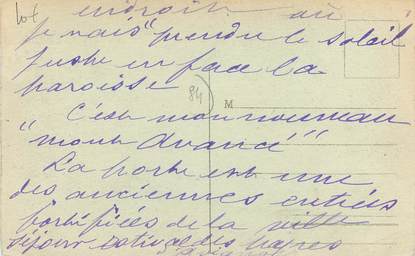 lot
endroit où
je vais "prendre le soleil
juste en face la
paroisse
84
M
C'est mon nouveau
"mont Avancé"
La porte est une
des anciennes entrées
fortifiées de la ville
séjour estival des Papes